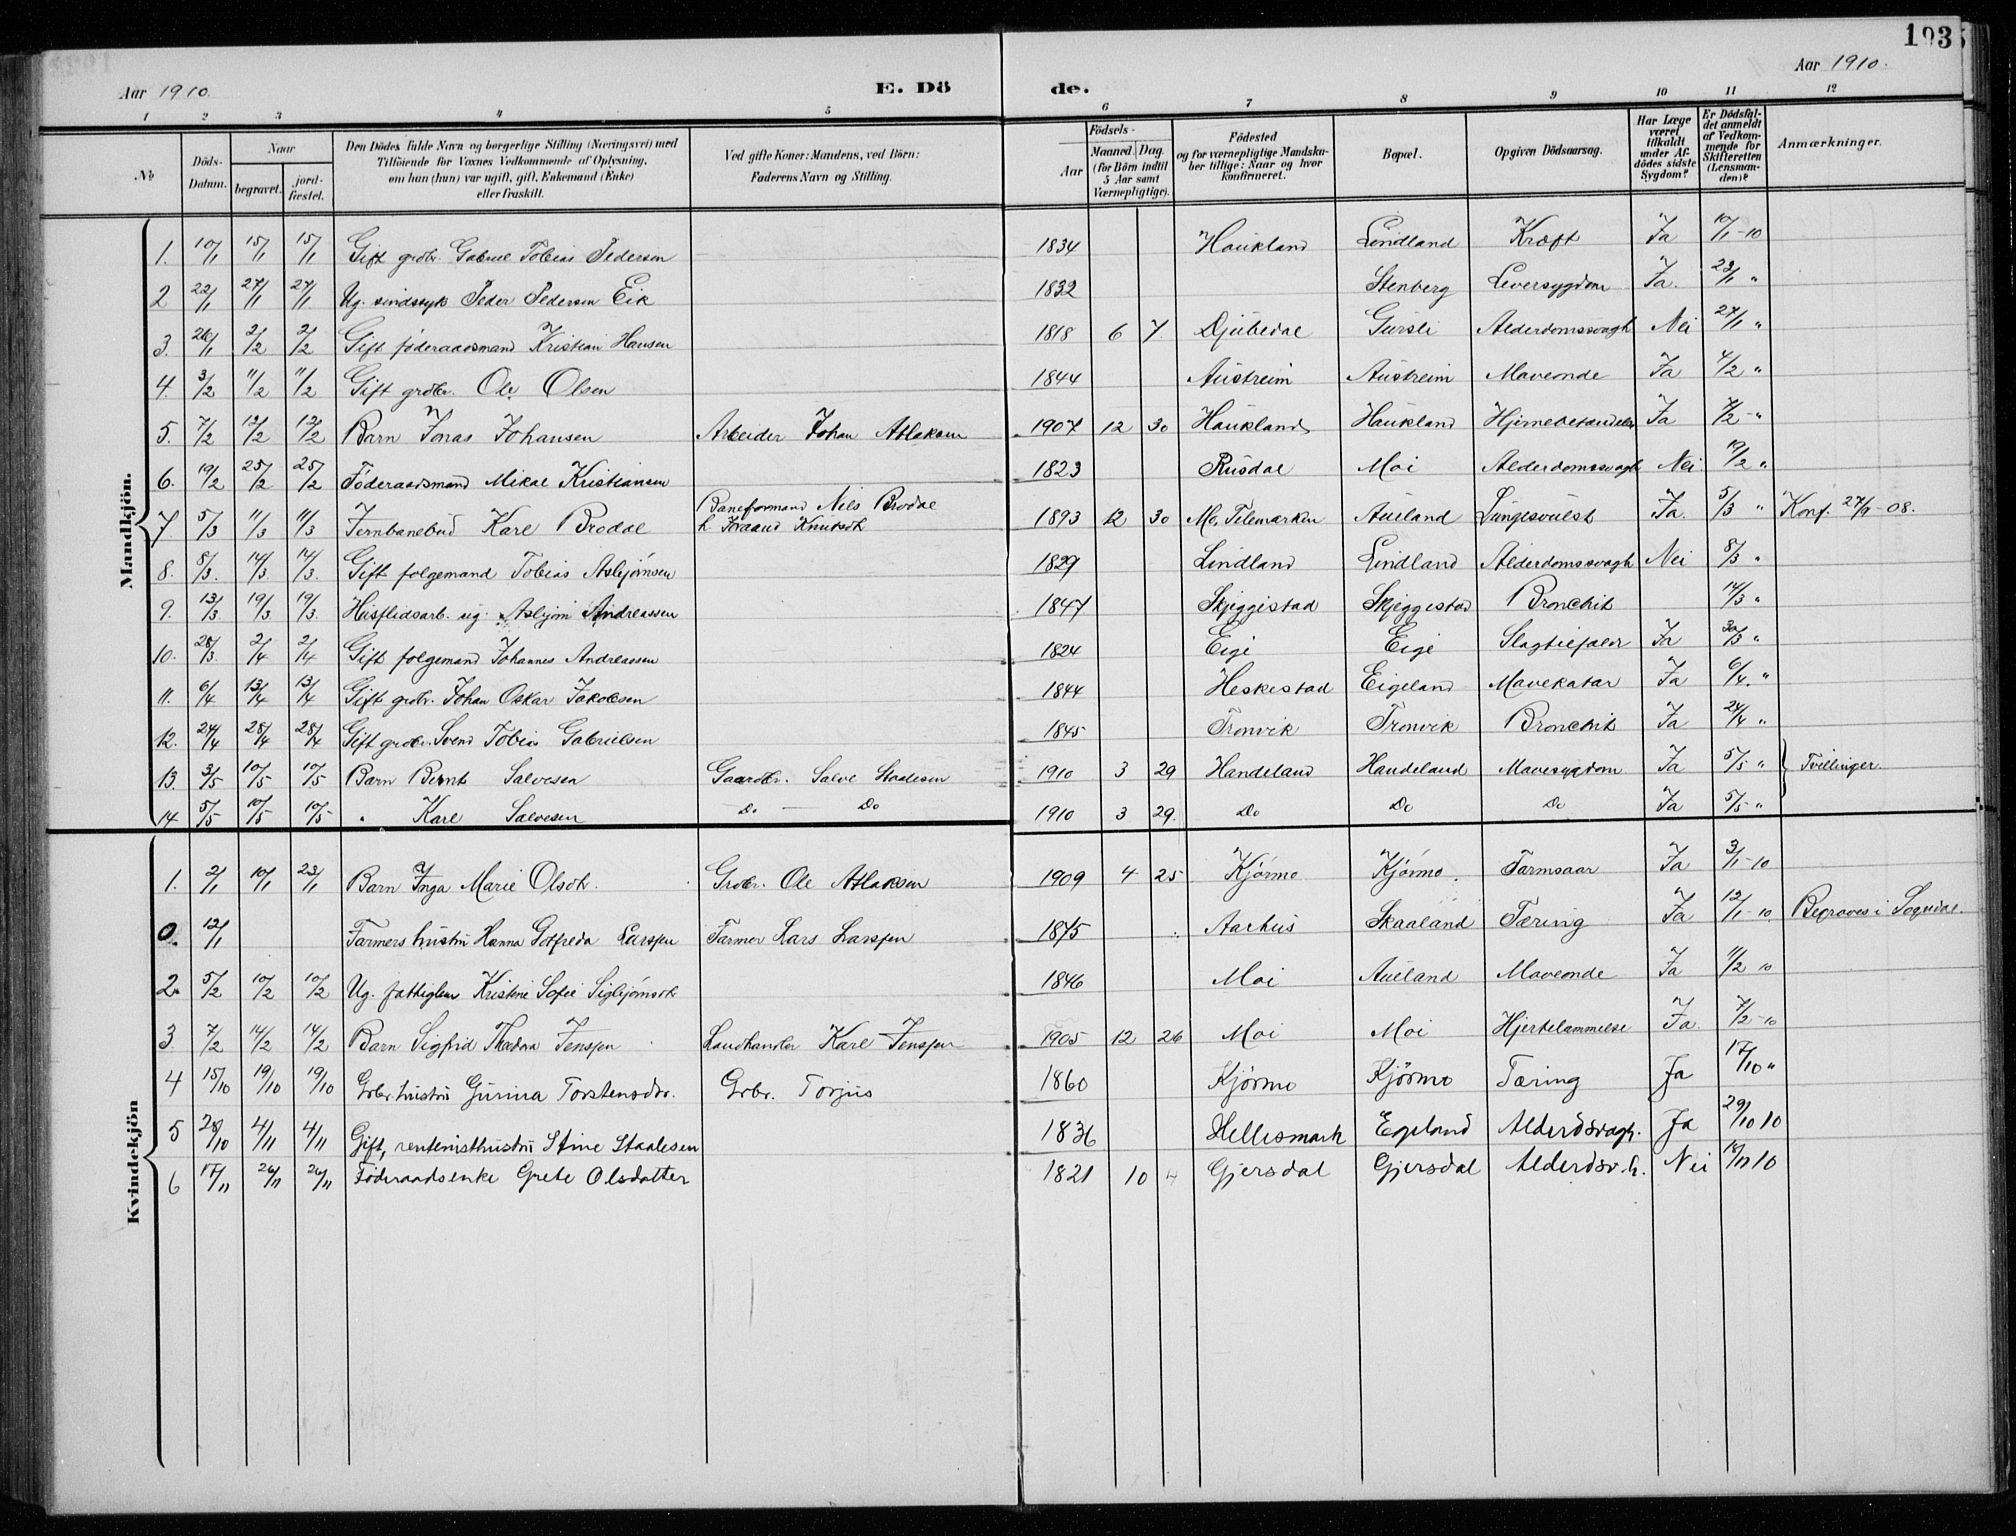 193
Aar 1910. E. Dö de. Aar 1910.
1 2 3 4 5 6 7 8 9 10 11 12
№ Döds-Datum. Naar begravet. jordfæstet. Den Dödes fulde Navn og borgerlige Stilling (Næringsvei) med Tilföiende for Voxnes Vedkommende af Oplysning, om han (hun) var ugift, gift, Enkemand (Enke) eller fraskilt. Ved gifte Koner: Mandens, ved Börn: Faderens Navn og Stilling. Födsels- Aar Maaned. Dag. (for Börn indtil 5 Aar samt Værnepligtige). Födested og for værnepligtige Mandskaber tillige: Naar og hvor konfirmeret. Bopæl. Opgiven Dödsaarsag. Har Læge været tilkaldt under Afdödes sidste Sygdom? Er Dödsfaldet anmeldt af Vedkommende for Skifteretten (Lensmanden)? Anmærkninger.
Mandkjön.
1. 10/1 15/1 15/1 Gift grdbr. Gabriel Tobias Pedersen 1834 Haukland Lindland Kræft Ja 10/1-10
2 22/1 27/1 27/1 Ug. sindssyk Peder Pedersen Eik 1832 Stenberg Leversygdom Ja. 22/1 "
3. 26/1 2/2 2/2 Gift föderaadsmand Kristian Hansen 1818 6 7. Djubedal Gursli Alderdomssvagh Nei 27/1 "
4. 3/2 11/2 11/2 Gift grdbr. Ole Olsen 1844 Austreim Austreim Maveonde Ja 4/2 "
5. 7/2 12/2 12/2 Barn Jonas Johansen Arbeider Johan Atlaksen 1907 12 30 Haukland Haukland Hjernebetændelse Ja 7/2 - "
6. 19/2 25/2 25/2 Föderaadsmand Mikal Kristiansen 1823 Rusdal Moi Alderdomssvagh Nei 19/2 "
7. 5/3 11/3 11/3 Jernbanebud Karl Brodal Baneformand Nils Brodal
h. Knutsdt. 1893 12 30 Mo, Telemarken Aueland Lungesvulst Ja. 5/3 " Konf. 27/9-08.
8. 8/3. 14/3. 14/3. Gift folgemand Tobias Asbjörnsen 1829 Lindland Lindland Alderdomssvagh Nei 8/3 "
9. 13/3 19/3 19/3 Husflidsarb. ug. Asbjörn Andreassen 1847 Skjeggestad Skjeggestad Bronchit 14/3 "
10. 28/3. 2/4 2/4 Gift folgemand Johannes Andreassen 1824 Eige Eige Slagtilfælde Ja 30/3 "
11. 6/4 13/4 13/4 Gift grdbr. Johan Oskar Jakobsen 1844 Heskestad Eigeland Mavekatar Ja 6/4. "
12. 24/4 28/4 28/4 Gift grdbr. Svend Tobias Gabrielsen 1845 Tronvik Tronvik Bronchit Ja 24/4 "
13. 3/5 10/5 10/5 Barn Bernt Salvesen Gaardbr. Salve Staalesen 1910 3 29 Handeland Handeland Mavesygdom Ja 5/5 " Tvillinger.
14 5/5 10/5 10/5 " Karl Salvesen Do — Do 1910 3 29. Do Do Do Ja 5/5 "
Kvindekjön
1. 2/1 10/1 23/1 Barn Inga Marie Olsdt. Grdbr. Ole Atlaksen 1909 4 25 Kjörmo Kjörmo. Tarmsaar Ja 3/1-10
0. 12/1 Farmers hustru Hanna Gotfreda Larssen Farmer Lars Larssen 1875 Aarhus Skaaland Tæring Ja 12/1-10. Begraves i Sogndal.
2. 5/2 10/2 10/2 Ug. fattiglem Kristine Sofie Sigbjörnsdt. 1846 Moi Aueland Maveonde Ja 11/2 10
3 7/2 14/2 14/2 Barn Sigfrid Theodora Jenssen Landhandler Karl Jenssen 1905 12 26 Moi Moi Hjertelammelse Ja. 7/2-10
4 15/10 19/10 19/10 Grbr. hustru Gurina Torstensddr. Grbr. Torjus 1860 Kjörmo Kjörmo Tæring Ja 17/10 "
5 28/10 4/11 4/11 Gift, rentenisthustru Stine Staalesen 1836 Hellesmark Egeland Alderdsvagh. Ja 29/10 10
6 17/11 26/11 26/11 Föderaadsenke Grete Olsdatter 1821 10 4 Gjersdal Gjersdal Alderdsv.h. Nei 18/11 10